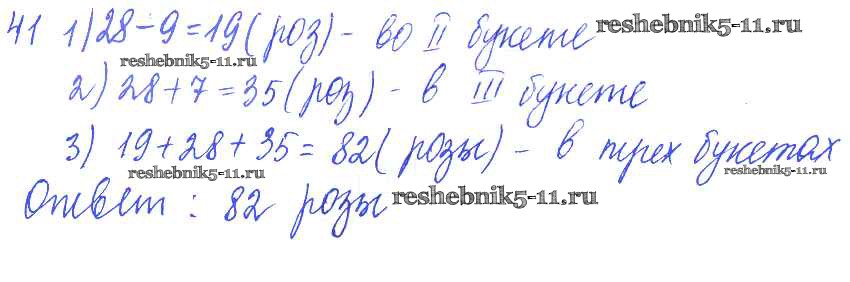 41 1) 28 - 9 = 19 ( роз) - во II букете reshebnik5-11.ru
reshebnik5-11.ru
2) 28 + 7 = 35 ( роз) - в III букете
3) 19 + 28 + 35 = 82 ( розы) - в трех букетах
reshebnik5-11.ru reshebnik5-11.ru
Ответ : 82 розы reshebnik5-11.ru